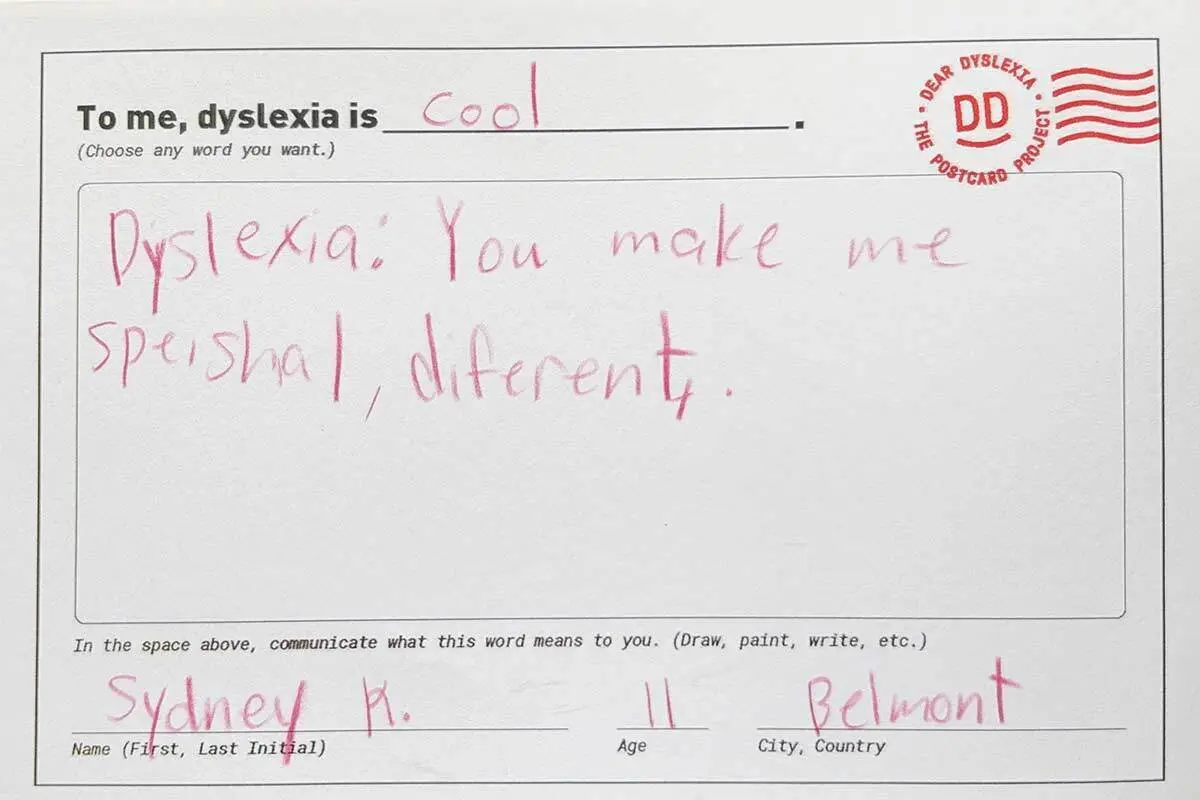 To me, dyslexia is cool.
(Choose any word you want.)
DEAR DYSLEXIA • THE POSTCARD PROJECT •
DD
Dyslexia: You make me
speishal, diferent,.
In the space above, communicate what this word means to you. (Draw, paint, write, etc.)
Sydney K. 11 Belmont
Name (First, Last Initial) Age City, Country